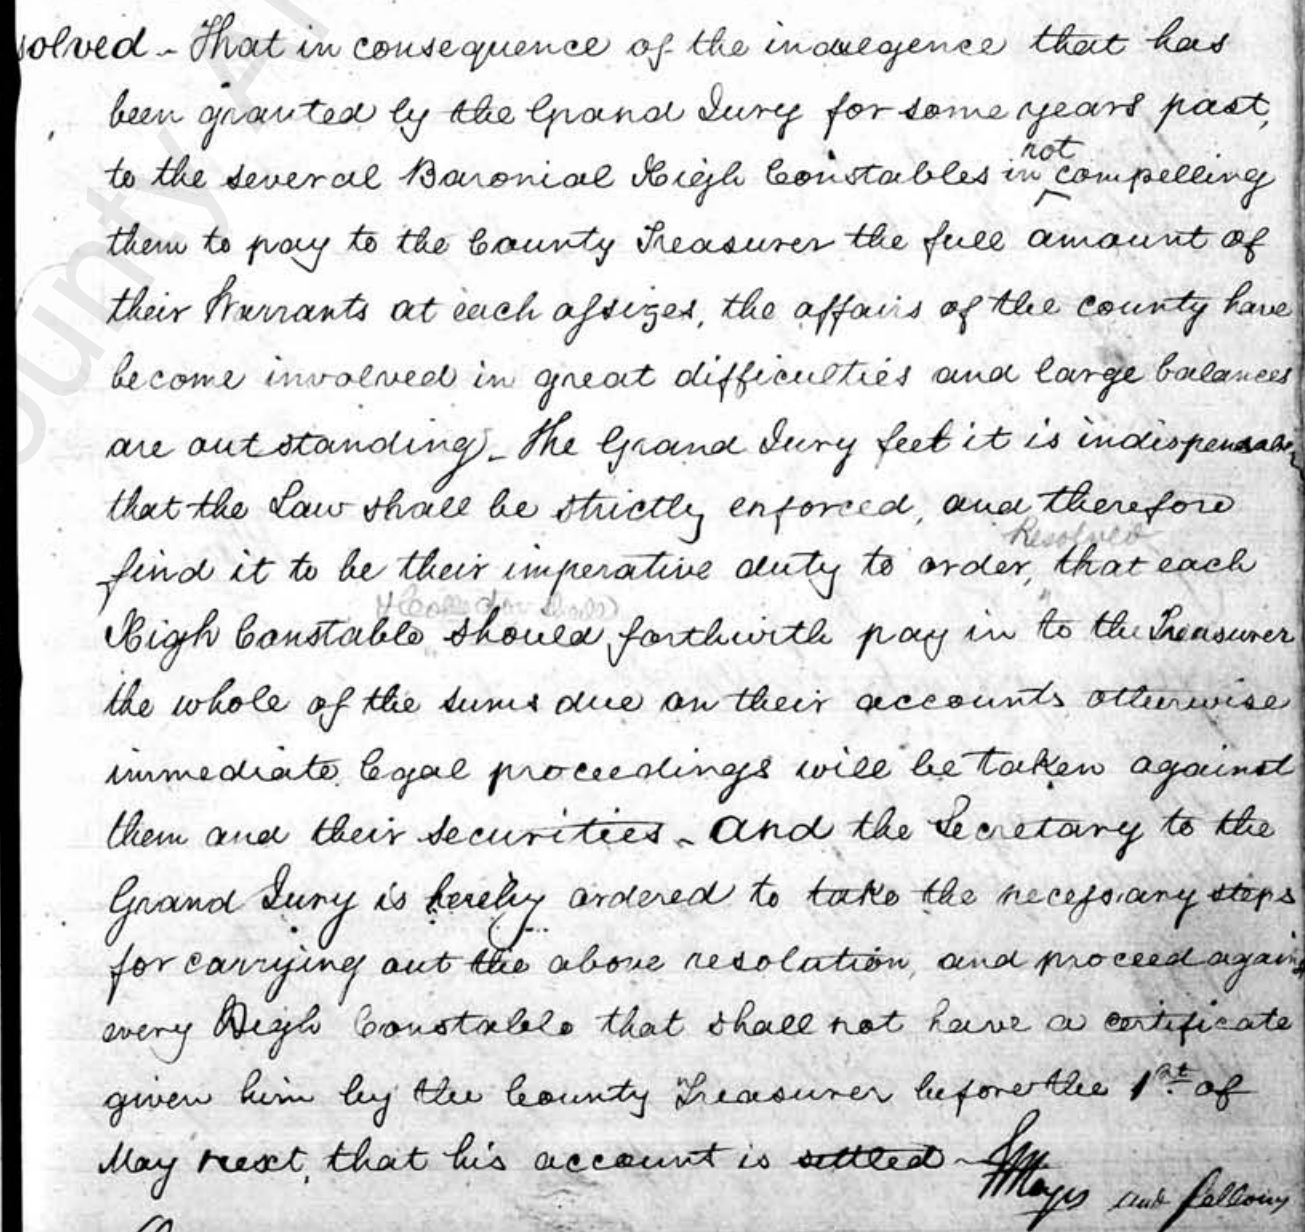 solved - That in consequence of the indulgence that has
been granted by the Grand Jury for some years past,
to the several Baronial High Constables in not compelling
them to pay to the County Treasurer the full amount of
their Warrants at each assizes, the affairs of the county have
become involved in great difficulties and large balances
are outstanding - The Grand Jury feel it is indispensable
that the Law shall be strictly enforced, and therefore
Resolved
find it to be their imperative duty to order, that each
High Constable should forthwith pay in to the Treasurer
the whole of the sums due on their accounts otherwise
immediate legal proceedings will be taken against
them and their securities - And the Secretary to the
Grand Jury is hereby ordered to take the necessary steps
for carrying out the above resolution, and proceed against
every High Constable that shall not have a certificate
given him by the County Treasurer before the 1st of
May next, that his account is settled -
and fellows
County A